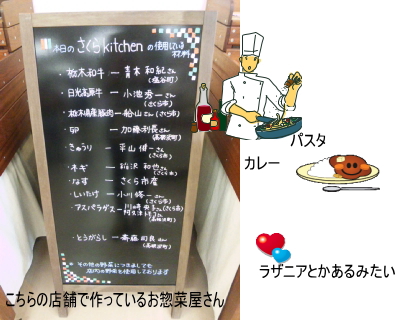 本日のさくらkitchenの使用している
材料
・栃木和牛 ー 青木 和紀さん
(塩谷町)
・日光高原牛 ー 小池 秀一さん
(さくら市)
・栃木県産豚肉 ー 船山さん(さくら市)
・卵 ー 加藤 利長さん
(高根沢町)
・きゅうり ー 平山 健一さん
(さくら市)
・ネギ ー 和也さん
(さくら市)
・なす ー さくら市産
・しいたけ ー 小川 さん
(さくら市)
・アスパラガス ー 川崎 さん(さくら市)
阿久津 さん
(高根沢町)
・とうがらし ー 斎藤 司良さん
(高根沢町)
その他の野菜につきましても
店内の野菜を使用しております
パスタ
カレー
ラザニアとかあるみたい
こちらの店舗で作っているお惣菜屋さん